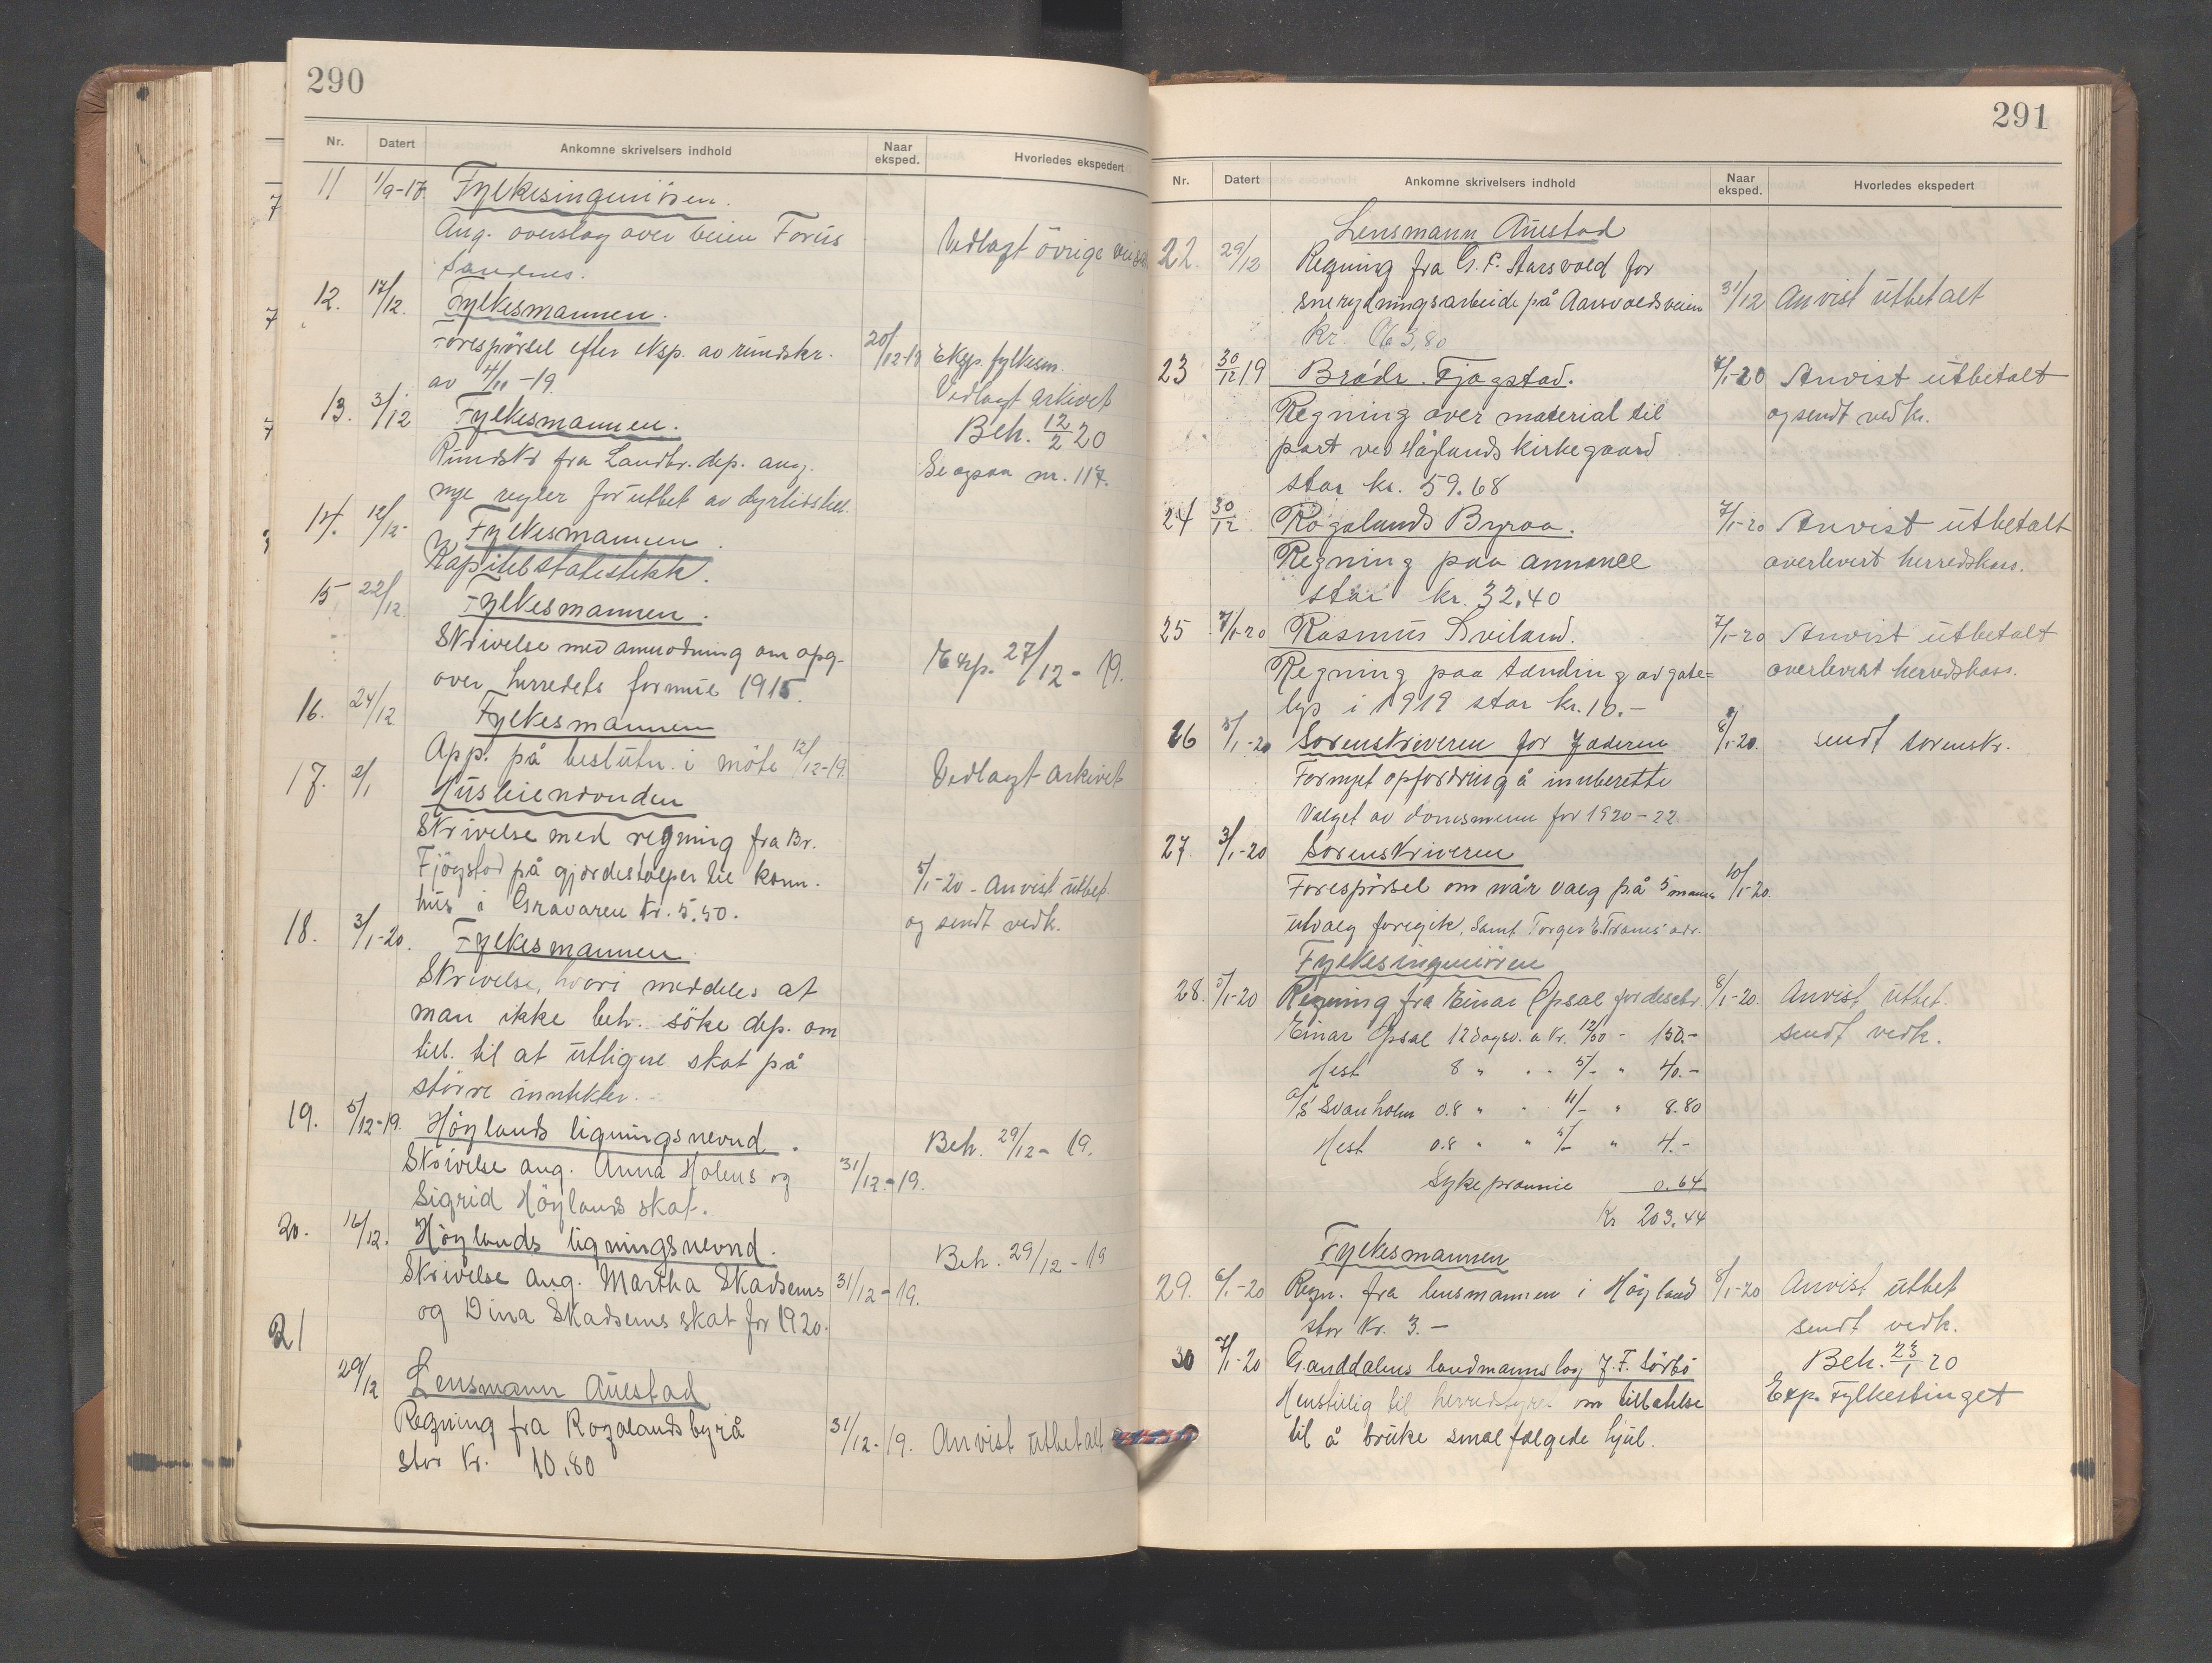 290
Nr. Datert Ankomne skrivelsers indhold Naar eksped. Hvorledes ekspedert
11 1/9-17 Fylkesingeniören.
Ang. overslag over veien Forus
Sandnes. Vedlagt övrige
12. 17/12. Fylkesmannen.
Forespörsel efter eksp. av rundskr. 20/12-19 Eksp. fylkesm.
av 4/11-19. Vedlagt arkivet
13. 3/12 Fylkesmannen. Beh. 12/2 20
Rundskr fra Landbr. dep. ang. Se ogsaa nr. 117.
nye regler for utbet av dyrtidstill.
14. 12/12- Fylkesmannen.
Kapitelstatistikk.
15 22/12 Fylkesmannen.
Skrivelse med anmodning om opg. Eksp. 27/12-19.
over herredets formue 1915.
16. 24/12 Fylkesmannen
App. på beslutn. i möte 12/12-19. Vedlagt arkivet
17. 2/1 Husleienevnden
Skrivelse med regning fra Br.
Fjögstad på gjerdestolper til kom. 5/1-20 - Anvist utbet.
hus i Gravaren Kr. 5.50. og sendt vedk.
18. 3/1-20. Fylkesmannen
Skrivelse, hvori meddeles at
man ikke beh. söke dep. om
till. til at utligne skat på
större inntekter.
19. 5/12-19. Höylands ligningsnevnd. Beh. 29/12-19.
Skrivelse ang. Anna Holens og 31/12-19.
Sigrid Höylands skat.
20. 16/12. Höylands ligningsnevnd. Beh. 29/12-19
Skrivelse ang. Martha Skadsems 31/12-19.
og Dina Skadsems skat for 1920.
21
29/12 Lensmann Austad
Regning fra Rogalandsbyrå 31/12-19. Anvist utbetalt
stor Kr. 10.80
291
Nr. Datert Ankomne skrivelsers indhold Naar eksped. Hvorledes ekspedert
Lensmann Austad
22. 29/12 Regning fra G. F. Aarsvold for
snerydningsarbeide på Aarsvoldsveien 31/12 Anvist utbetalt
kr. 63,80
23 30/12 19 Brödr. Fjogstad. 7/1-20 Anvist utbetalt
Regning over material til og sendt vedk.
port ved Höylands kirkegaard
stor kr. 59.68
24 30/12 Rogalands Byraa. 7/1-20 Anvist utbetalt
Regning paa annonce overlevert herredskass.
stor kr. 32.40
25 7/1-20 Rasmus Sviland. 7/1-20 Anvist utbetalt
Regning paa tænding av gate= overlevert herredskass.
lys i 1919 stor kr. 10.-
26 5/1-20 Sorenskriveren for Jæderen 8/1-20. sendt sorenskr.
Fornyet opfordring å innberette
Valget av domsmenn for 1920-22.
27. 3/1-20 Sorenskriveren
Forespörsel om når valg på 5 manns 10/1-20.
utvalg foregik, samt Torger E. Tranes' adr.
Fylkesingeniören
28. 5/1-20 Regning fra Einar Opsal for desebr. 8/1-20. Anvist utbet.
Einar Opsal 12 dagsv. a Kr. 12/50 - 150.- sendt vedk.
Hest 8 " " 5/- " 40.-
A/S Svanholm 0.8 " " 11/- " 8.80
Hest 0.8 " " 5/- " 4.-
Sykepremie 0.64
Kr 203.44
Fylkesmannen
29. 6/1-20 Regn. fra lensmannen i Höyland 8/1-20 Anvist utbet
stor Kr. 3.- sendt vedk.
30 7/1-20 Ganddalens landmannslag J. F. Sörbö Beh. 23/1 20
Henstillig til herredstyre om tillatelse Exp. Fylkestinget
til å bruke smalfælgede hjul.